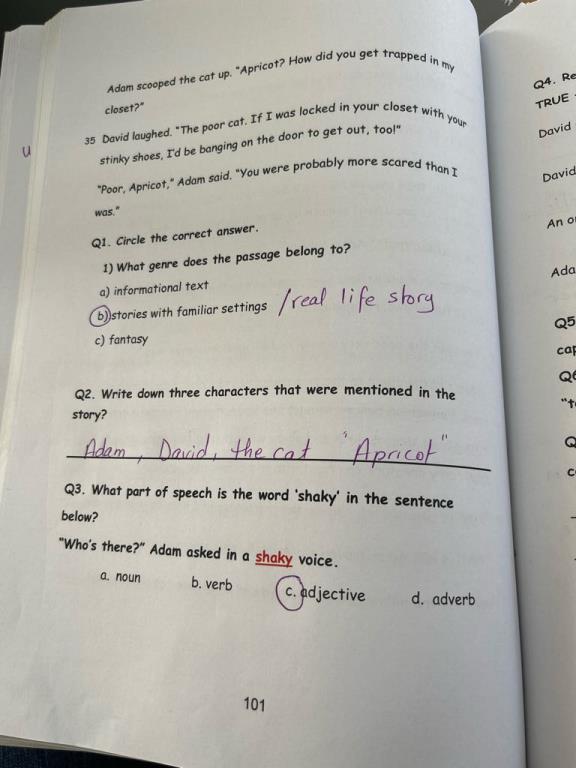 Adam scooped the cat up. "Apricot? How did you get trapped in my
closet?"
35 David laughed. "The poor cat. If I was locked in your closet with your
stinky shoes, I'd be banging on the door to get out, too!"
u
"Poor, Apricot," Adam said. "You were probably more scared than I
was."
Q1. Circle the correct answer.
1) What genre does the passage belong to?
a) informational text
b) stories with familiar settings /real life story
c) fantasy
Q2. Write down three characters that were mentioned in the
story?
Adam, David, the cat "Apricot"
Q3. What part of speech is the word 'shaky' in the sentence
below?
"Who's there?" Adam asked in a shaky voice.
a. noun b. verb c. adjective d. adverb
101
Q4. Re
TRUE
David
David
An o
Ada
Q5
cap
Q6
"t
Q
c